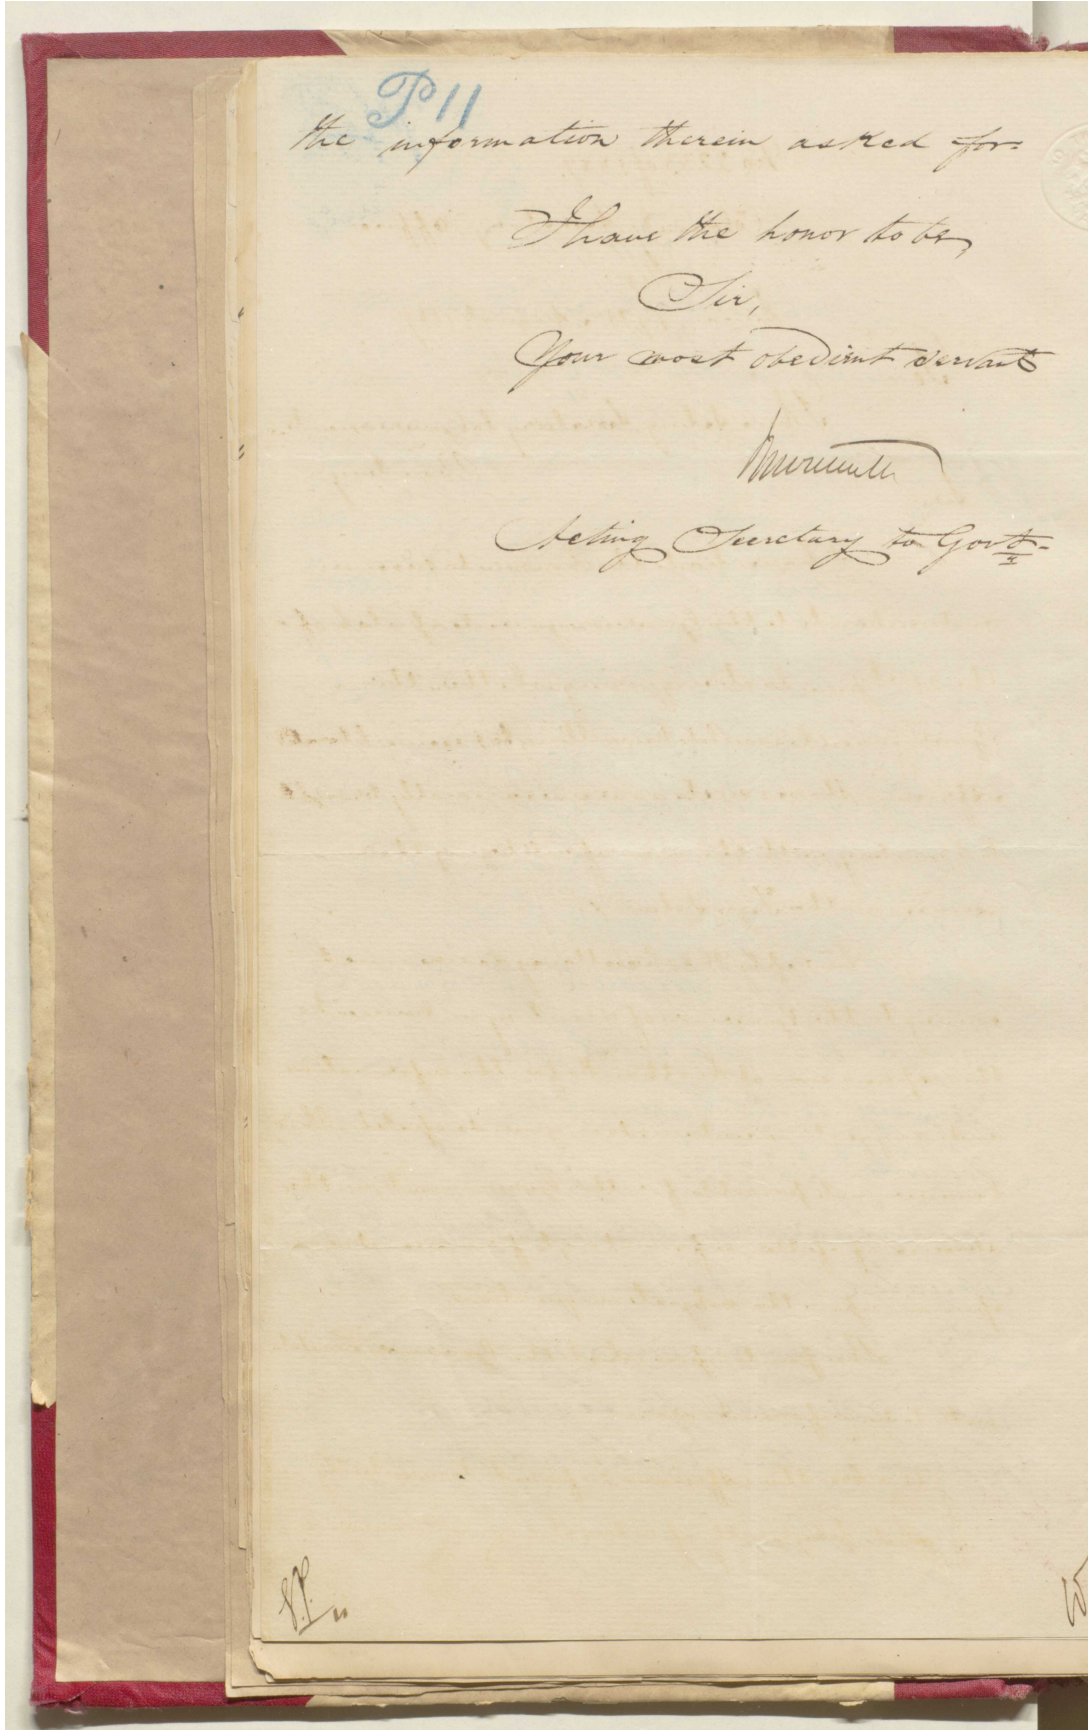 P 11
the information therein asked for-
I have the honor to be,
Sir,
Your most obedient servant
Acting Secretary to Govt-